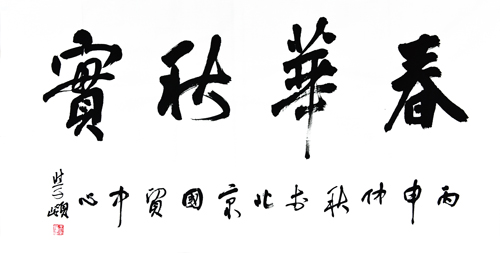 春華秋實
丙申仲秋於北京國貿中心